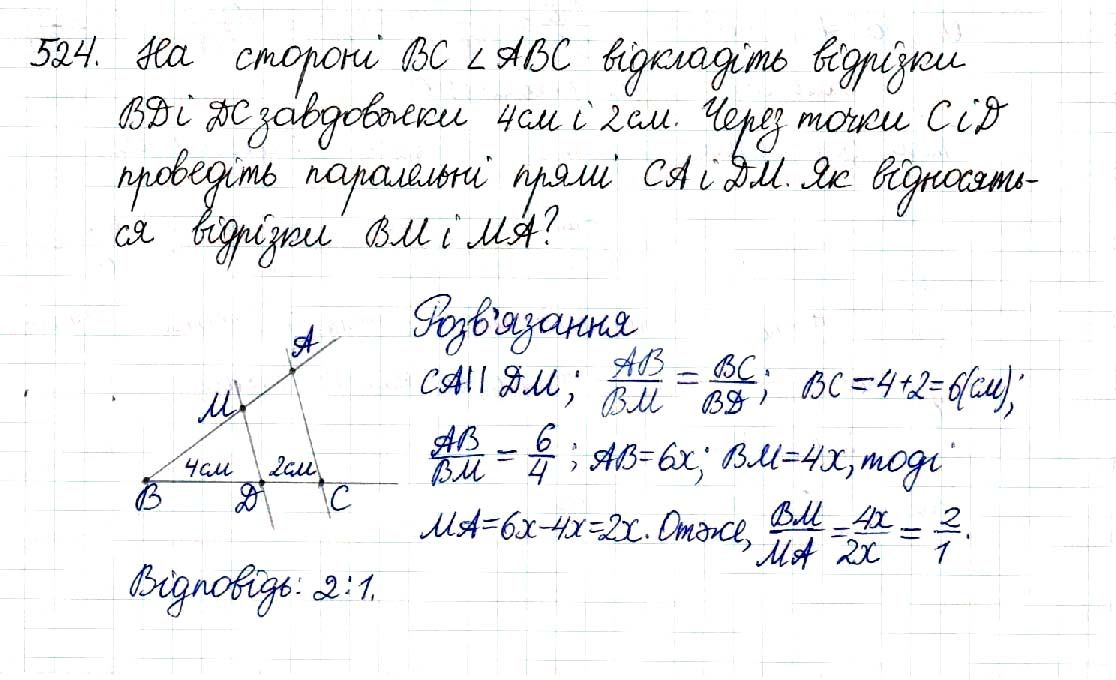 524. На стороні BC ∠ABC відкладіть відрізки
BD і DC завдовжки 4см і 2см. Через точки C і D
проведіть паралельні прямі CA і DM. Як відносять-
ся відрізки BM і MA?
Розв'язання
CA || DM; AB/BM = BC/BD; BC = 4+2=6(см);
AB/BM = 6/4; AB=6x; BM=4x, тоді
MA=6x-4x=2x. Отже, BM/MA = 4x/2x = 2/1.
A
M
4см 2см
B D C
Відповідь: 2:1.